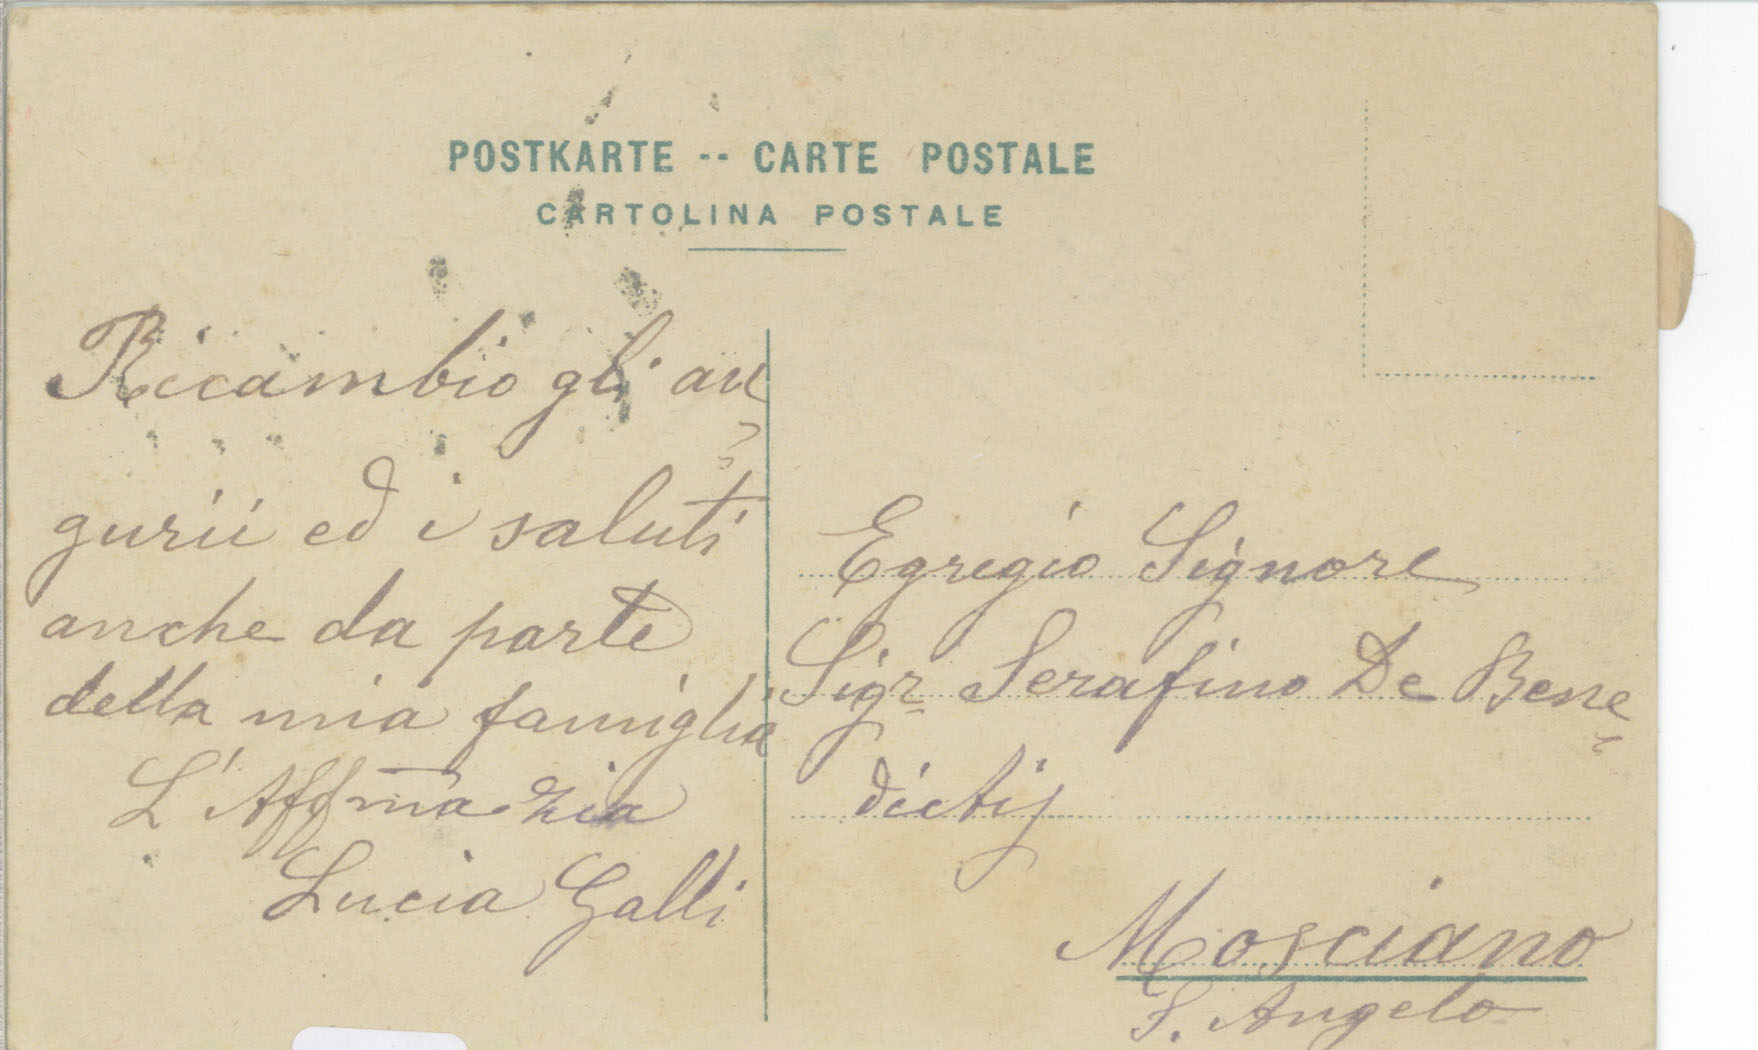 POSTKARTE -- CARTE POSTALE
CARTOLINA POSTALE
Ricambio gli au=
gurii ed i saluti
anche da parte
della mia famiglia
L'Affma zia
Lucia Galli
Egregio Signore
Sigr Serafino De Bene=
dictij
Mosciano
S. Angelo